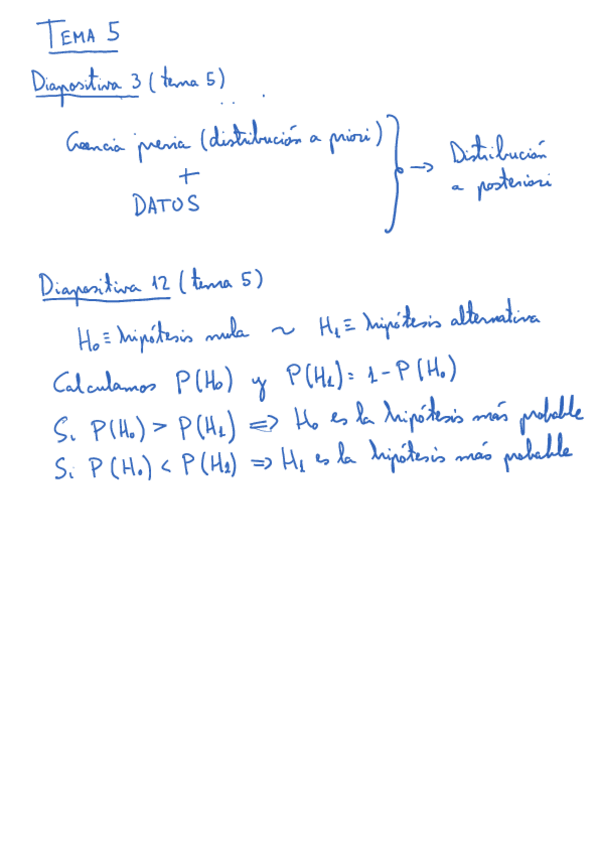 TEMA 5
Diapositiva 3 (tema 5)
Creencia previa (distribución a priori)
+
DATOS
→ Distribución
a posteriori
Diapositiva 12 (tema 5)
H₀ ≡ hipótesis nula ~ H₁ ≡ hipótesis alternativa
Calculamos P(H₀) y P(H₁) = 1 - P(H₀)
Si P(H₀) > P(H₁) => H₀ es la hipótesis más probable
Si P(H₀) < P(H₁) => H₁ es la hipótesis más probable